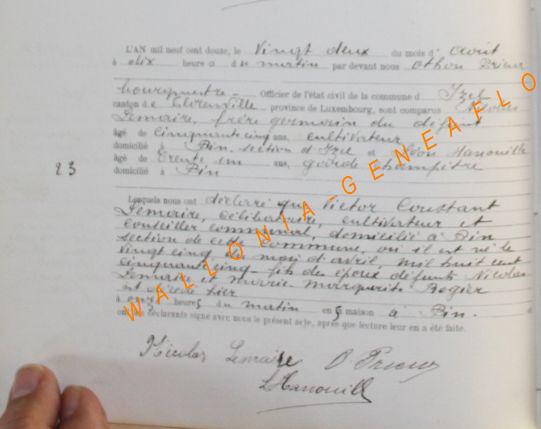 L'AN mil neuf cent douze, le Vingt deux du mois d' Août
à dix heures du matin par devant nous Othon Prieur
bourgmestre Officier de l'état civil de la commune d' Izel
canton de Florenville, province de Luxembourg, sont comparus Nicolas
Lemaire, frère germain du défunt
âgé de cinquante cinq ans, cultivateur
domicilié à Pin, section d'Izel et Léon Hanouille
âgé de trente un ans, garde champêtre
domicilié à Pin
23
Lesquels nous ont déclaré que Victor Constant
Lemaire, célibataire, cultivateur et
conseiller communal, domicilié à Pin
section de cette commune, où il est né le
vingt cinq du mois d'avril mil huit cent
cinquante cinq fils des époux défunts Nicolas
Lemaire et Marie Marguerite
est décédé hier
à heures du matin en sa maison à Pin.
ont les déclarants signé avec nous le présent acte, après que lecture leur en a été faite.
Nicolas Lemaire O. Prieur
L. Hanouille
WALLONIA GENEAFLO